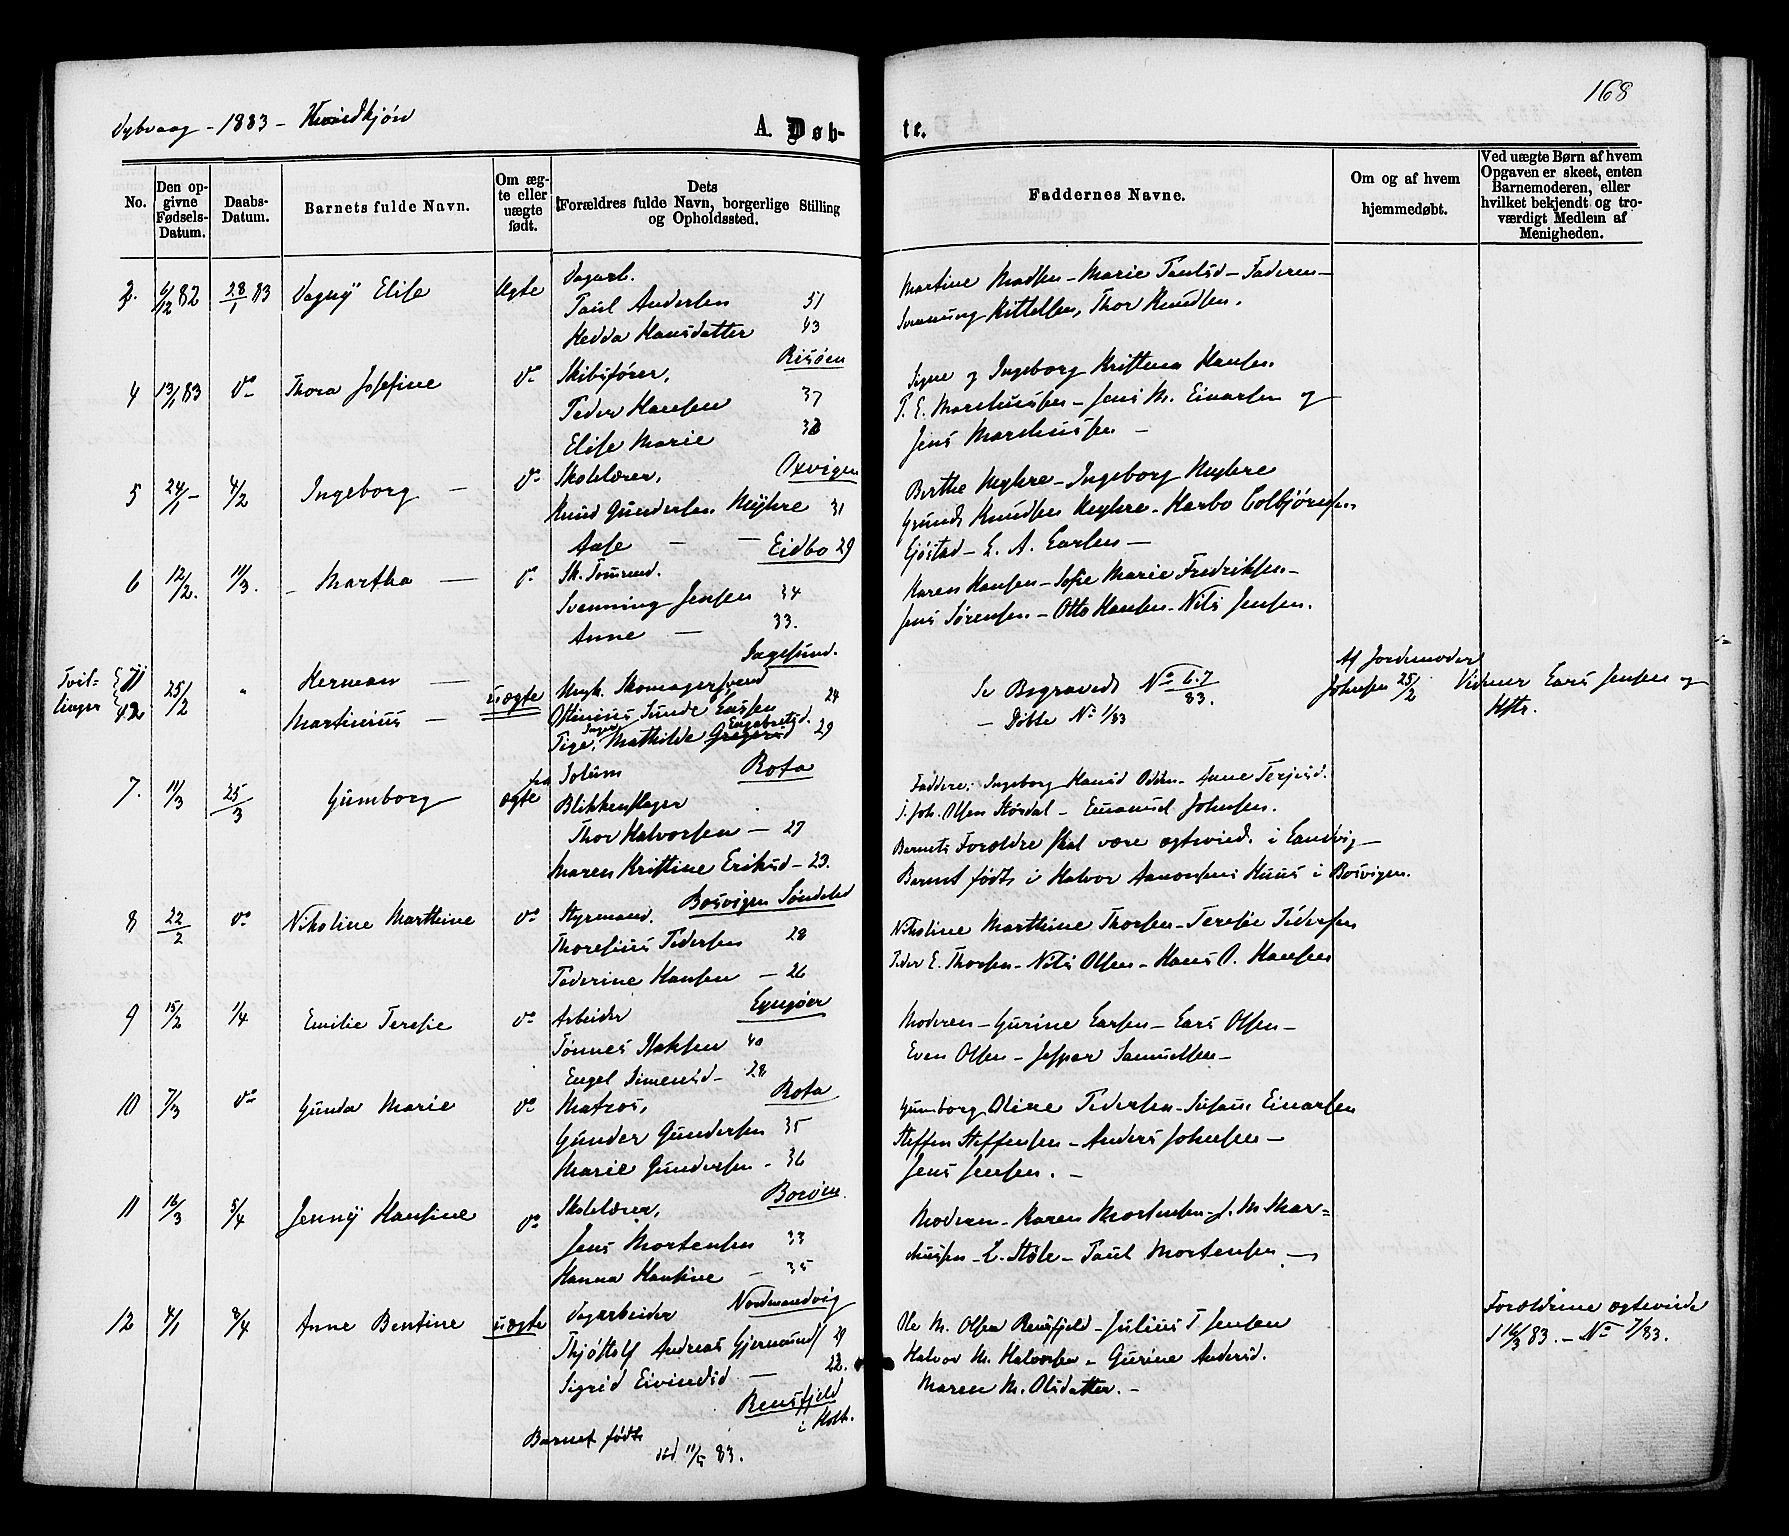 168
Dybvaag - 1883 - Kvindkjøn
A. Døb-
te.
No.
Den op-
givne
Fødsels-
Datum.
Daabs-
Datum.
Barnets fulde Navn.
Om æg-
te eller
uægte
født.
Dets
Forældres fulde Navn, borgerlige Stilling
og Opholdssted.
Faddernes Navne.
Om og af hvem
hjemmedøbt.
Ved uægte Børn af hvem
Opgaven er skeet, enten
Barnemoderen, eller
hvilket bekjendt og tro-
værdigt Medlem af
Menigheden.
6/12 82 28/1 83 Dagny Elise Ægte Dagarb.
Paul Andersen 51
Hedda Hansdatter 43
Risøen
Martine Madsen - Marie Paulsd - Faderen -
Svennung Kittelsen, Thor Knudsen.
4 13/1 83 do Thora Josefine do Skibsfører,
Peder Hansen 37
Elise Marie
Oxvigen
Signe og Ingeborg Kristina Hansen.
P. E. Marcussen - Jens M. Einarsen og
Jens Marcussen -
5 24/1 - 4/2 Ingeborg - do Skolelærer,
Knud Gundersen Myhre 31
Aase - - Eidbo 29
Berthe Myhre - Ingeborg Myhre
Knudsen Myhre - Colbjørnsen
Gjøstad - L. A. Larsen -
6 12/2. 11/3. - Martha - do Sk. Tømmd.
Svenning Jensen 34
Anne - 33.
Sagesund.
Karen Hansen - Sofie Marie Fredriksen -
Jens Sørensen - Otto Hansen - Nils Jensen.
Tvil-
linger
25/2 " Herman -
Martinius -
uægte Ungk. Skomagersvend
Ottinius Sunde Enssen 24
Pige, Inger Mathilde Engebretsd. 29
Rota
Se Begravede No 6.7/83.
- Døbte No 1/83
Af Jordemoder
Johnsen 25/2
Vidner Lars Jensen og
Hstr.
7. 11/3 25/3 Gumborg ægte fra Solum
Blikkenslager
Thor Halvorsen - 27
Maren Kristine Eriksd - 23.
Bosvigen Søndeled
Faddere: Ingeborg Hansd Odden - Anne Terjesd.
J. Joh. Olsen Størdal - Emanuel Johnsen.
Barnets Forældre skal være ægteviede i Landvig -
Barnet født i Halvor Aanonsens Huus i Bosvigen.
8 22/2 do Nikoline Marthine do Styrmand.
Thoresius Pedersen 28
Pederine Hansen - 26
Lyngøer
Nikoline Marthine Thorsen - Teresie Pedersen
Peder E. Thorsen - Nils Olsen - Hans O. Hansen
9 15/2 1/4 Emilie Teresie do Arbeider
Tønnes Isaksen 40
Engel Simensd - 28
Rota
Moderen - Gurine Larsen - Lars Olsen -
Even Olsen - Jesper Samuelsen -
10 7/3 do Gunda Marie do Matros,
Gunder Gundersen 35
Marie Gundersen - 36
Borøen.
Gumborg Oline Pedersen - Susanne Einarsen
Steffen Steffensen - Anders Johnsen -
Jens Jensen. -
11 16/3 5/4 Jenny Hansine do Skolelærer,
Jens Mortensen 33
Hanna Hansine - 35
Nordmandvig
Moderen - Karen Mortensen - J. M. Mar=
cussen - L. Støle - Paul Mortensen -
12 4/1 8/4 Anne Bentine uægte Dagarbeider
Thjøstolf Andreas Gjermunds 29
Sigrid Eivindsd - 22.
Rensfjeld
i Holt.
Barnet født
83.
Ole M. Olsen Rensfjeld - Julius T Jensen
Halvor M. Halvorsen - Gurine Andersd.
Maren M. Olsdatter. -
Forældrene ægteviede
d 16/3 83. - No 7/83.